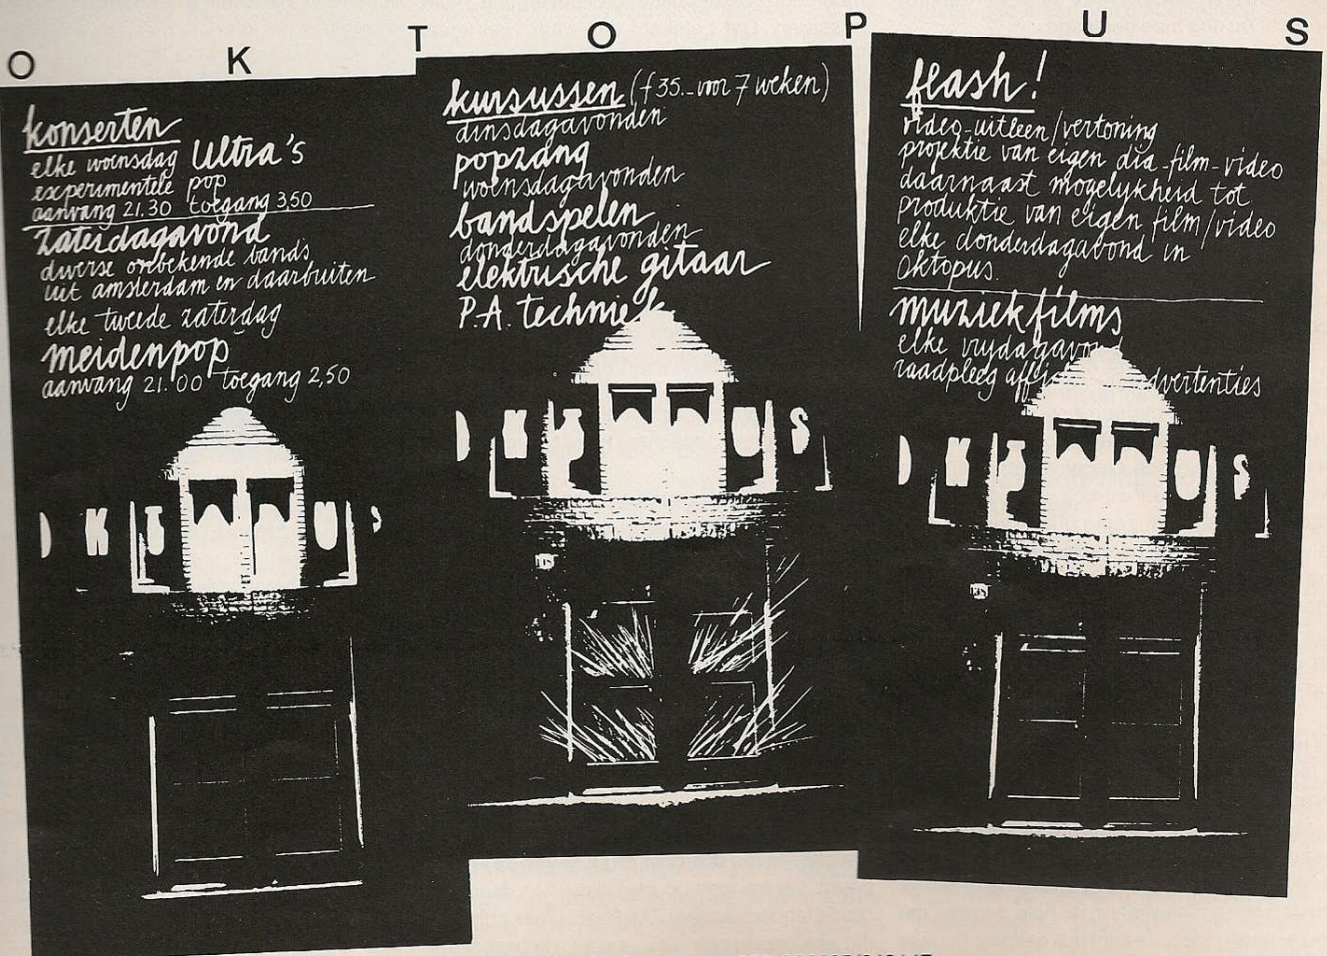 O K T O P U S
konserten
elke woensdag Ultra's
experimentele pop
aanvang 21.30 toegang 350
zaterdagavond
diverse onbekende bands
uit amsterdam en daarbuiten
elke tweede zaterdag
meidenpop
aanvang 21.00 toegang 2,50
kursussen (f 35.- voor 7 weken)
dinsdagavonden
popzang
woensdagavonden
bandspelen
donderdagavonden
elektrische gitaar
P.A. techniek
flash!
video-uitleen/vertoning
projektie van eigen dia-film-video
daarnaast mogelykheid tot
produktie van eigen film/video
elke donderdagavond in
oktopus.
muziekfilms
elke vrydagavond
raadpleeg advertenties